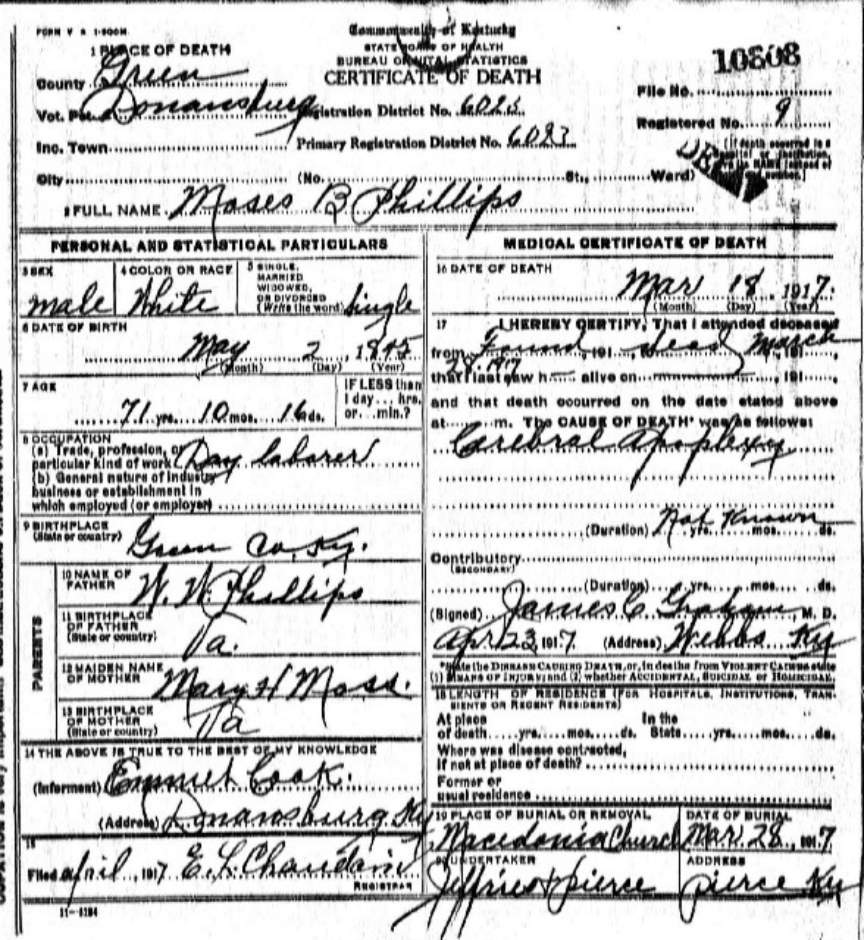 FORM V S 1-500M
Commonwealth of Kentucky
STATE BOARD OF HEALTH
BUREAU OF VITAL STATISTICS
CERTIFICATE OF DEATH
1 PLACE OF DEATH
County Green
Vot. Donansburg Registration District No. 6023
Inc. Town Primary Registration District No. 6023
City (No. St., Ward)
10508
File No.
Registered No. 9
2 FULL NAME Moses B Phillips
PERSONAL AND STATISTICAL PARTICULARS
3 SEX male
4 COLOR OR RACE White
5 SINGLE, MARRIED WIDOWED, OR DIVORCED (Write the word) Single
6 DATE OF BIRTH
May 2, 1845
(Month) (Day) (Year)
7 AGE
71 yrs. 10 mos. 16 ds.
IF LESS than 1 day... hrs. or... min.?
8 OCCUPATION
(a) Trade, profession, or particular kind of work Day laborer
(b) General nature of industry business or establishment in which employed (or employer)
9 BIRTHPLACE
(State or country) Green Co, Ky.
PARENTS
10 NAME OF FATHER W. W. Phillips
11 BIRTHPLACE OF FATHER (State or country) Va.
12 MAIDEN NAME OF MOTHER Mary H Moss.
13 BIRTHPLACE OF MOTHER (State or country) Va
14 THE ABOVE IS TRUE TO THE BEST OF MY KNOWLEDGE
(Informent) Emmet Cook.
(Address) Donansburg Ky
15
Filed April, 1917 E. L. Chaudoin
REGISTRAR
11-5184
MEDICAL CERTIFICATE OF DEATH
16 DATE OF DEATH
Mar 18, 1917.
(Month) (Day) (Year)
17 I HEREBY CERTIFY, That I attended deceased
from Found, 191, to dead March, 191,
28 1917
that I last saw h alive on, 191,
and that death occurred on the date stated above
at m. The CAUSE OF DEATH* was as follows:
Cerebral Apoplexy
(Duration) Not Known yrs. mos. ds.
Contributory
(SECONDARY)
(Duration) yrs. mos. ds.
(Signed) James C Graham, M. D.
Apr 23, 1917 (Address) Webbs Ky
*State the DISEASE CAUSING DEATH, or, in deaths from VIOLENT CAUSES state
(1) MEANS OF INJURY; and (2) whether ACCIDENTAL, SUICIDAL or HOMICIDAL.
18 LENGTH OF RESIDENCE (FOR HOSPITALS, INSTITUTIONS, TRANSIENTS OR RECENT RESIDENTS)
At place of death yrs. mos. ds. In the State yrs. mos. ds.
Where was disease contracted,
if not at place of death?
Former or
usual residence
19 PLACE OF BURIAL OR REMOVAL Macedonia Church
DATE OF BURIAL Mar 28, 1917
20 UNDERTAKER Jeffries & pierce
ADDRESS pierce Ky